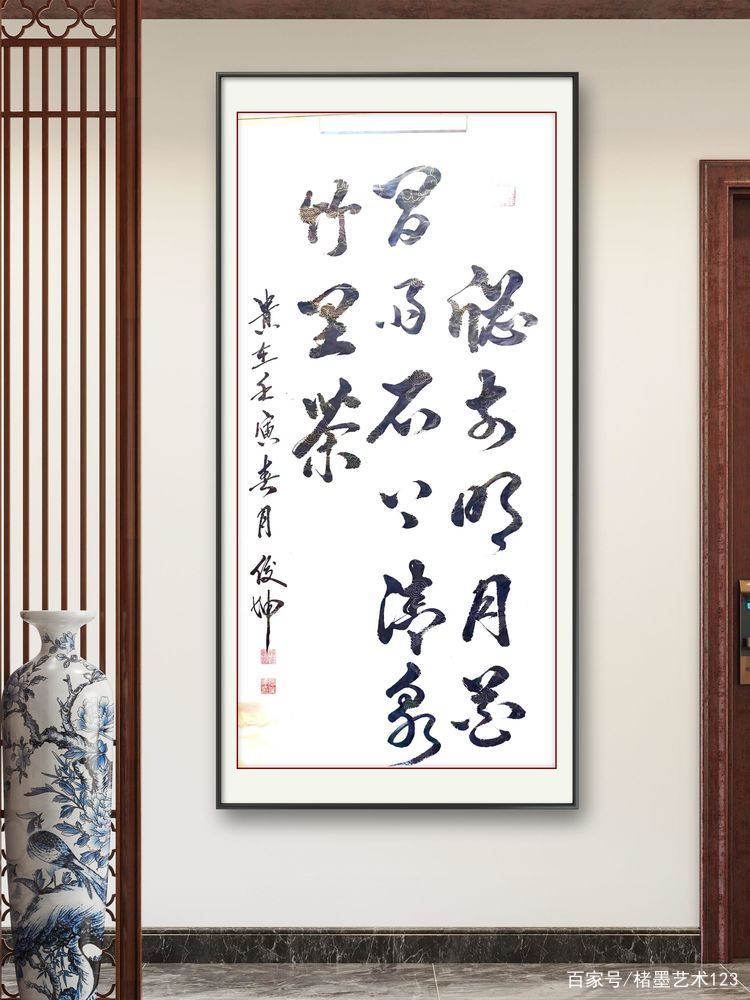 牕前明月花
間雨石上清泉
竹里茶
歲在壬寅春月俊坤
百家号/楮墨艺术123